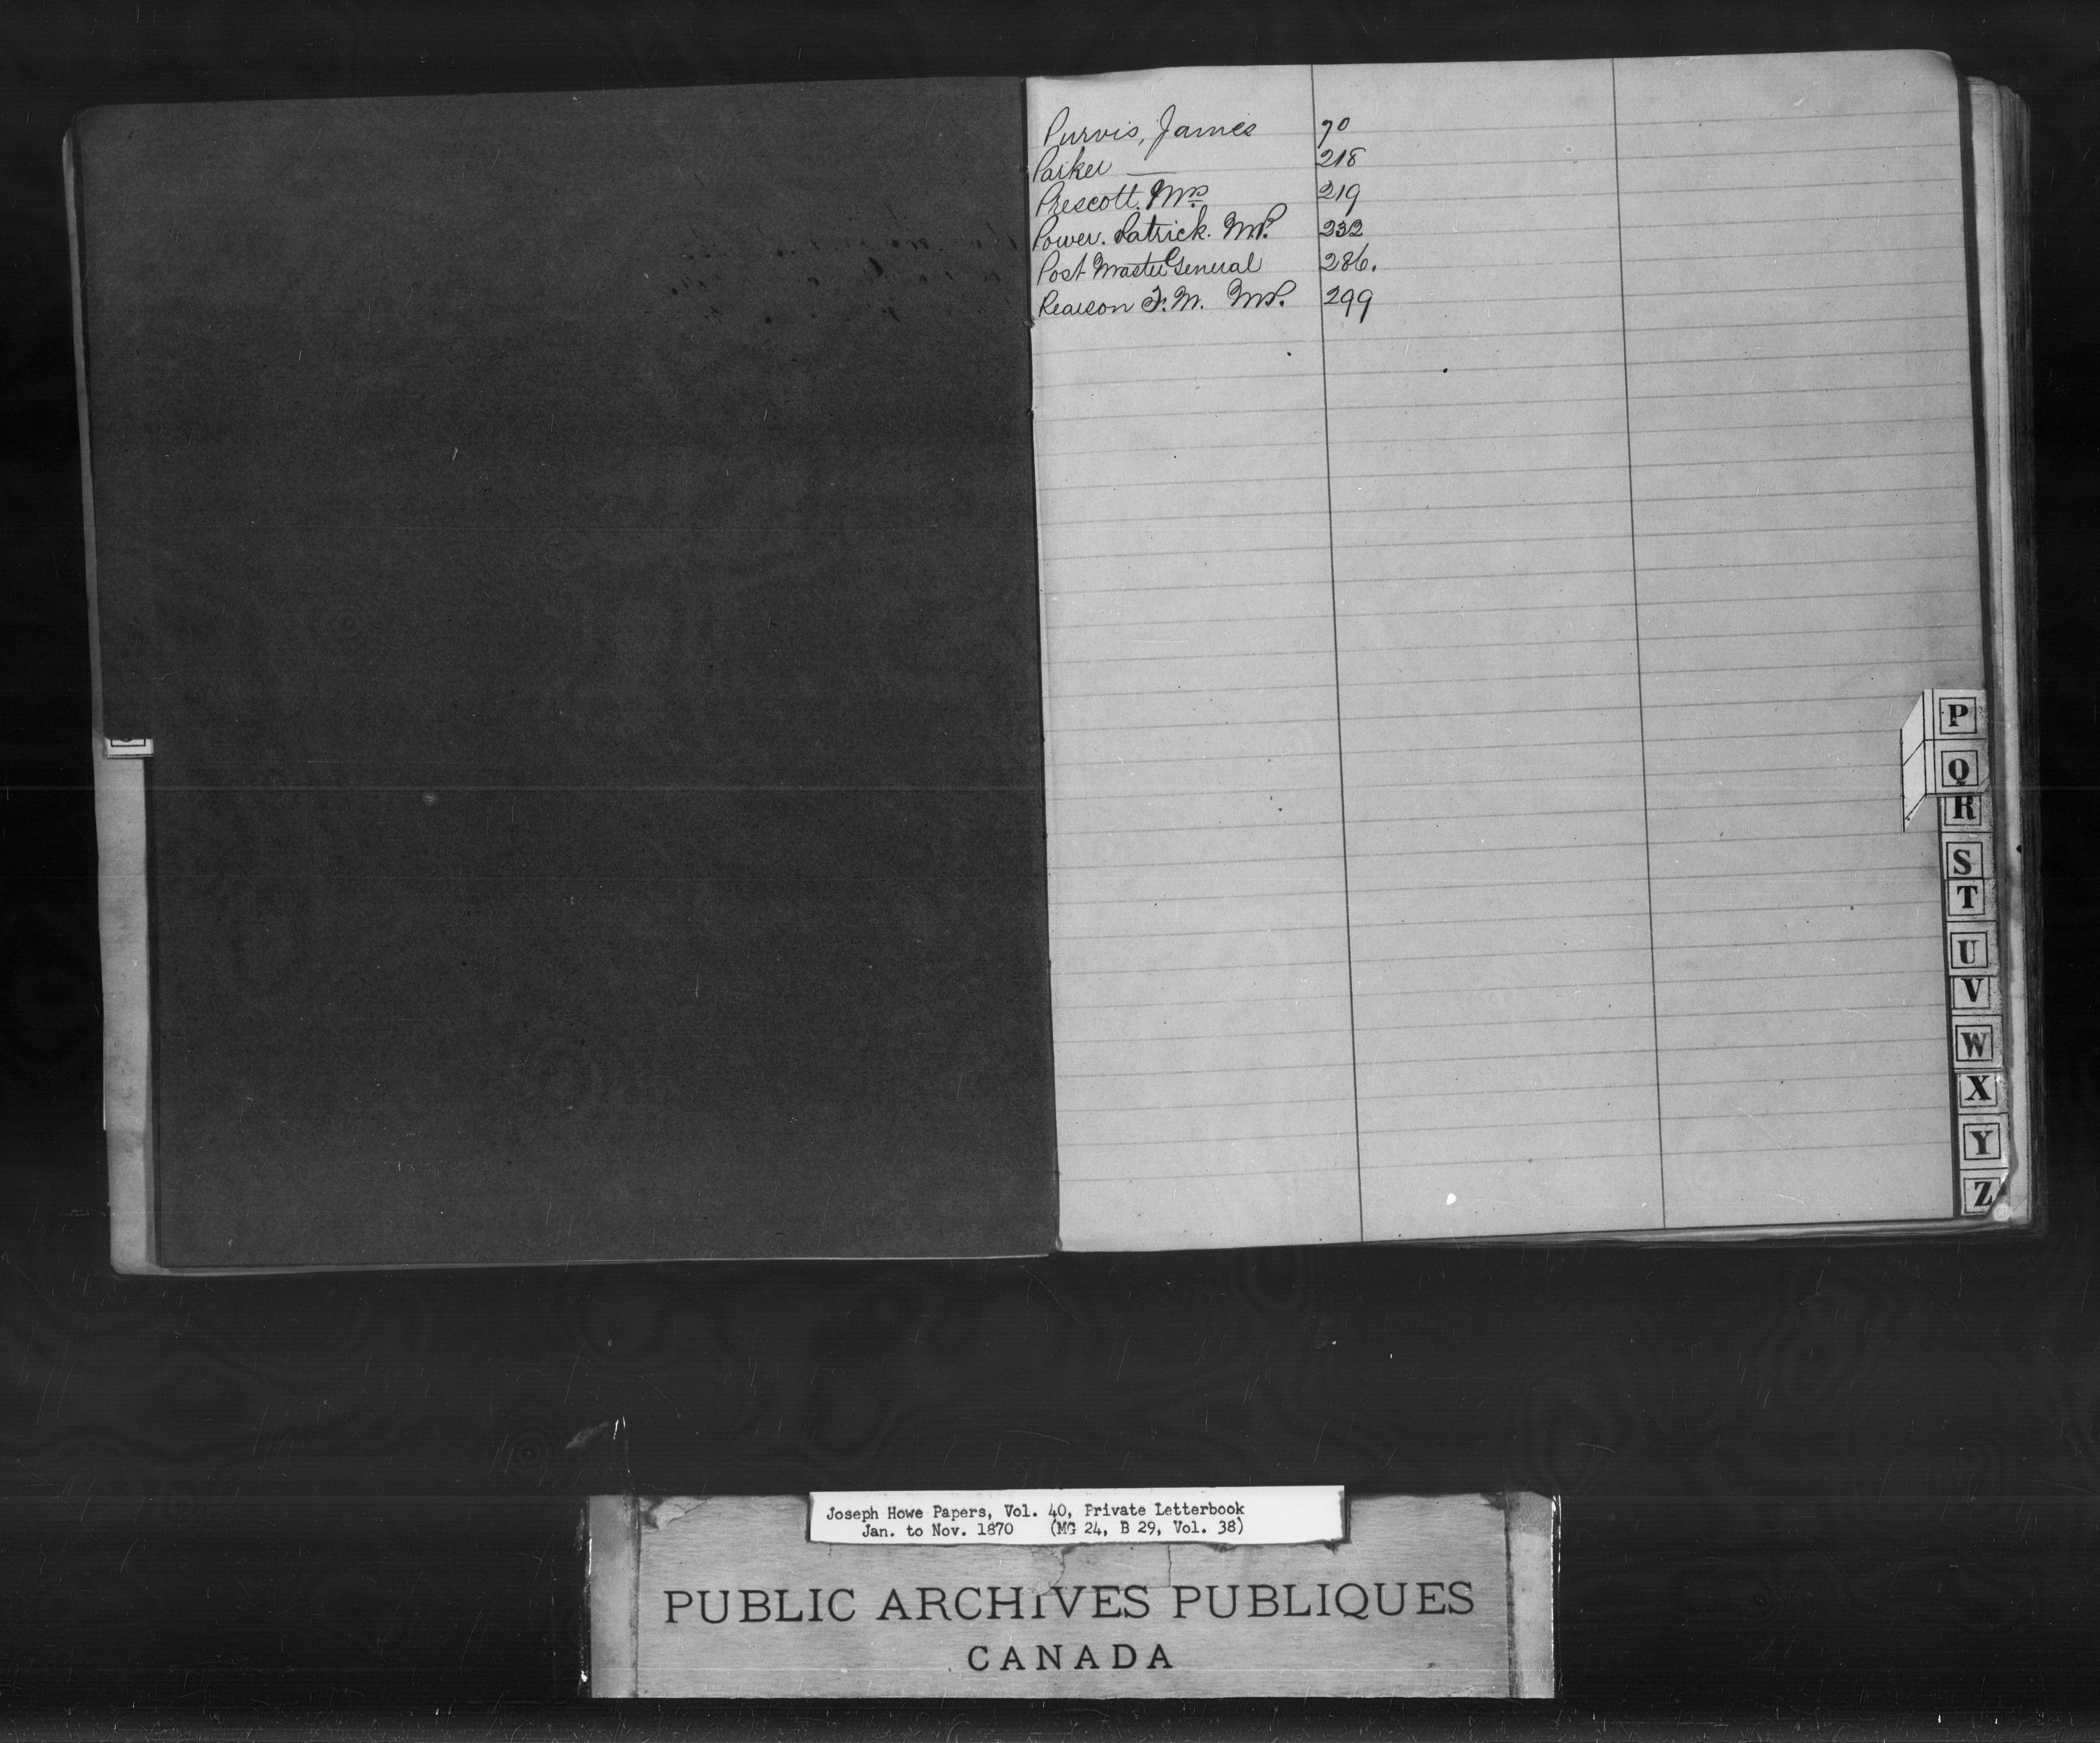 Purvis, James 70
Parker — 218
Prescott. Mrs 219
Power. Patrick. MP. 232
Post Master General 286.
Pearson F. M. MP. 299
P
Q
R
S
T
U
V
W
X
Y
Z
Joseph Howe Papers, Vol. 40, Private Letterbook
Jan. to Nov. 1870 (MG 24, B 29, Vol. 38)
PUBLIC ARCHIVES PUBLIQUES
CANADA